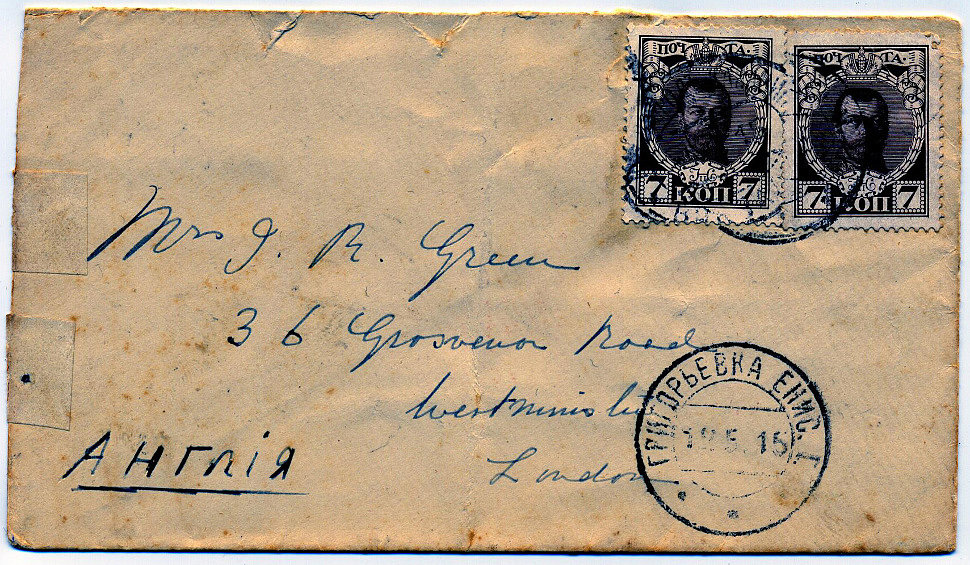 ПОЧТА.
7 КОП 7
ПОЧТА.
7 КОП 7
Mrs J. R. Green
36 Grosvenor Road
Westminster
London
Англія
ГРИГОРЬЕВКА ЕНИС. Г.
19.5.15